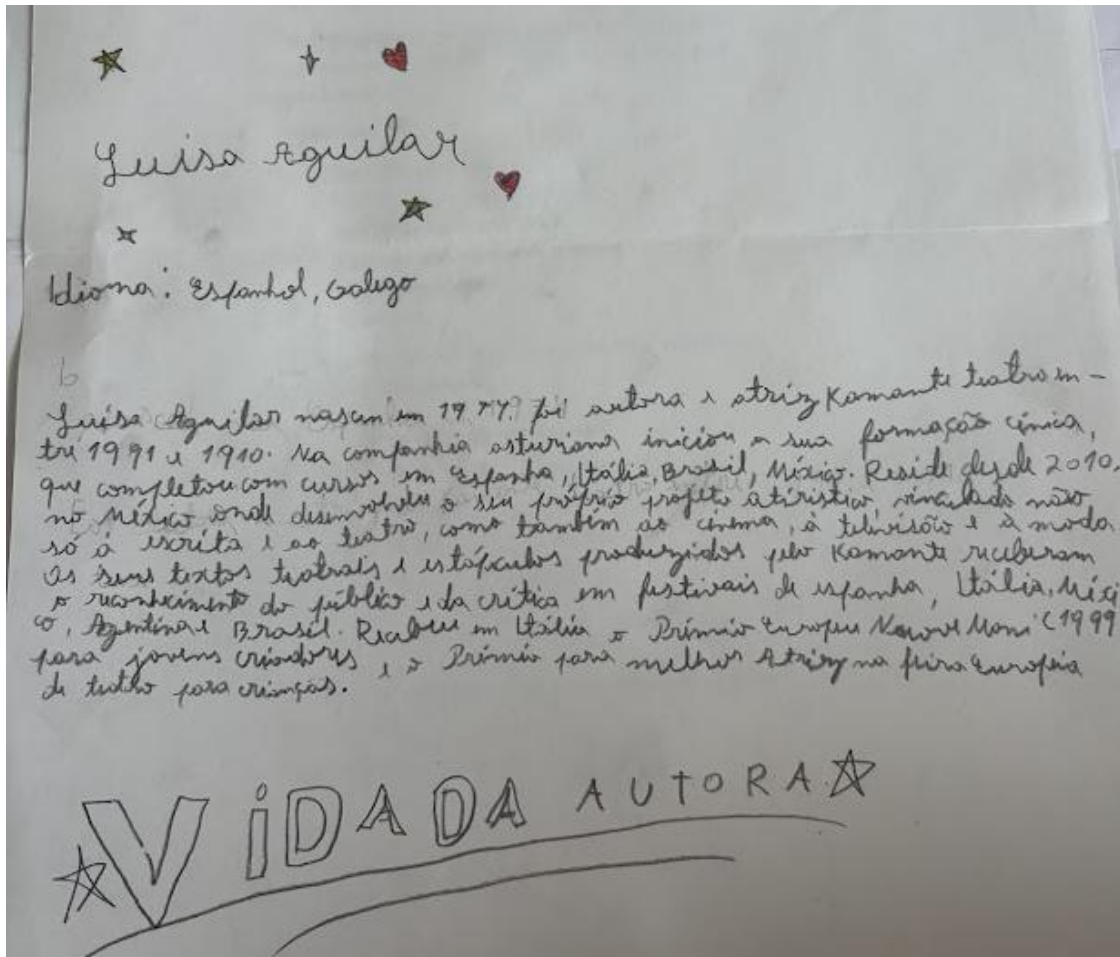 Luisa Aguilar
Idioma: Espanhol, Galego
Luísa Aguilar nasceu em 19 foi autora e atriz Kamante teatro en-
tre 1991 e 1910. Na companhia asturiana iniciou a sua formação cénica,
que completou com cursos em Espanha, Itália, Brasil, México. Reside desde 2010,
no México onde desenvolveu o seu próprio projeto atirístico, vinculado não
só à escrita e ao teatro, como também ao cinema, à televisão e à moda
Os seus textos teatrais e estápculos produzidos pelo Kamante receberam
o reconhecimento do público e da crítica em festivais de espanha, Itália, Méxi
co, Agentina e Brasil. Recebeu em Itália o Prémio Europeu (1999
para jovens criadores e o Prémio para melhor Atriz na feira Europeia
de teatro para crianças.
VIDA DA AUTORA